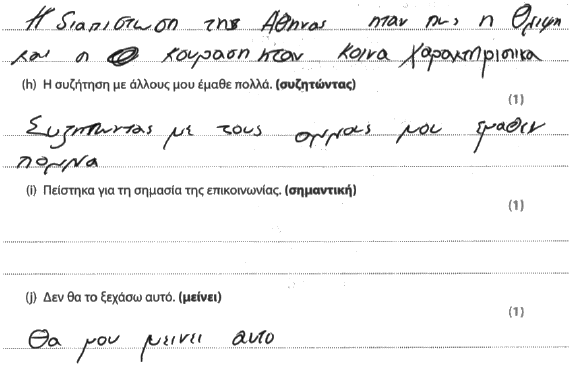 Η διαπιστωση της Αθηνας ηταν πως η θλιψη
και η κουραση ηταν κοινα χαρακτηριστικα
(h) Η συζήτηση με άλλους μου έμαθε πολλά. (συζητώντας)
(1)
Συζητωντας με τους αλλους μου εμαθεν
πολλα
(i) Πείστηκα για τη σημασία της επικοινωνίας. (σημαντική)
(1)
(j) Δεν θα το ξεχάσω αυτό. (μείνει)
(1)
Θα μου μεινει αυτο